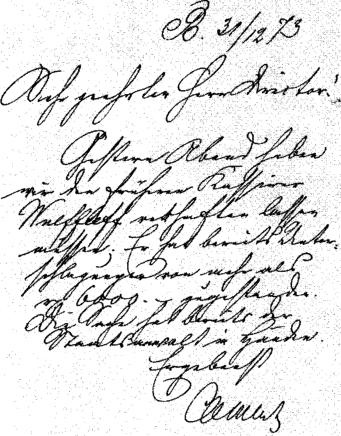 B. 31/12 73
Sehr geehrter Herr Direktor!
Gestern Abend haben
wir den früheren Kassierer
verhaften lassen
müssen. Er hat bereits Unter-
schlagungen von mehr als
6000.- zugestanden.
Die Sache hat bereits der
Staatsanwalt in Händen.
Ergebenst